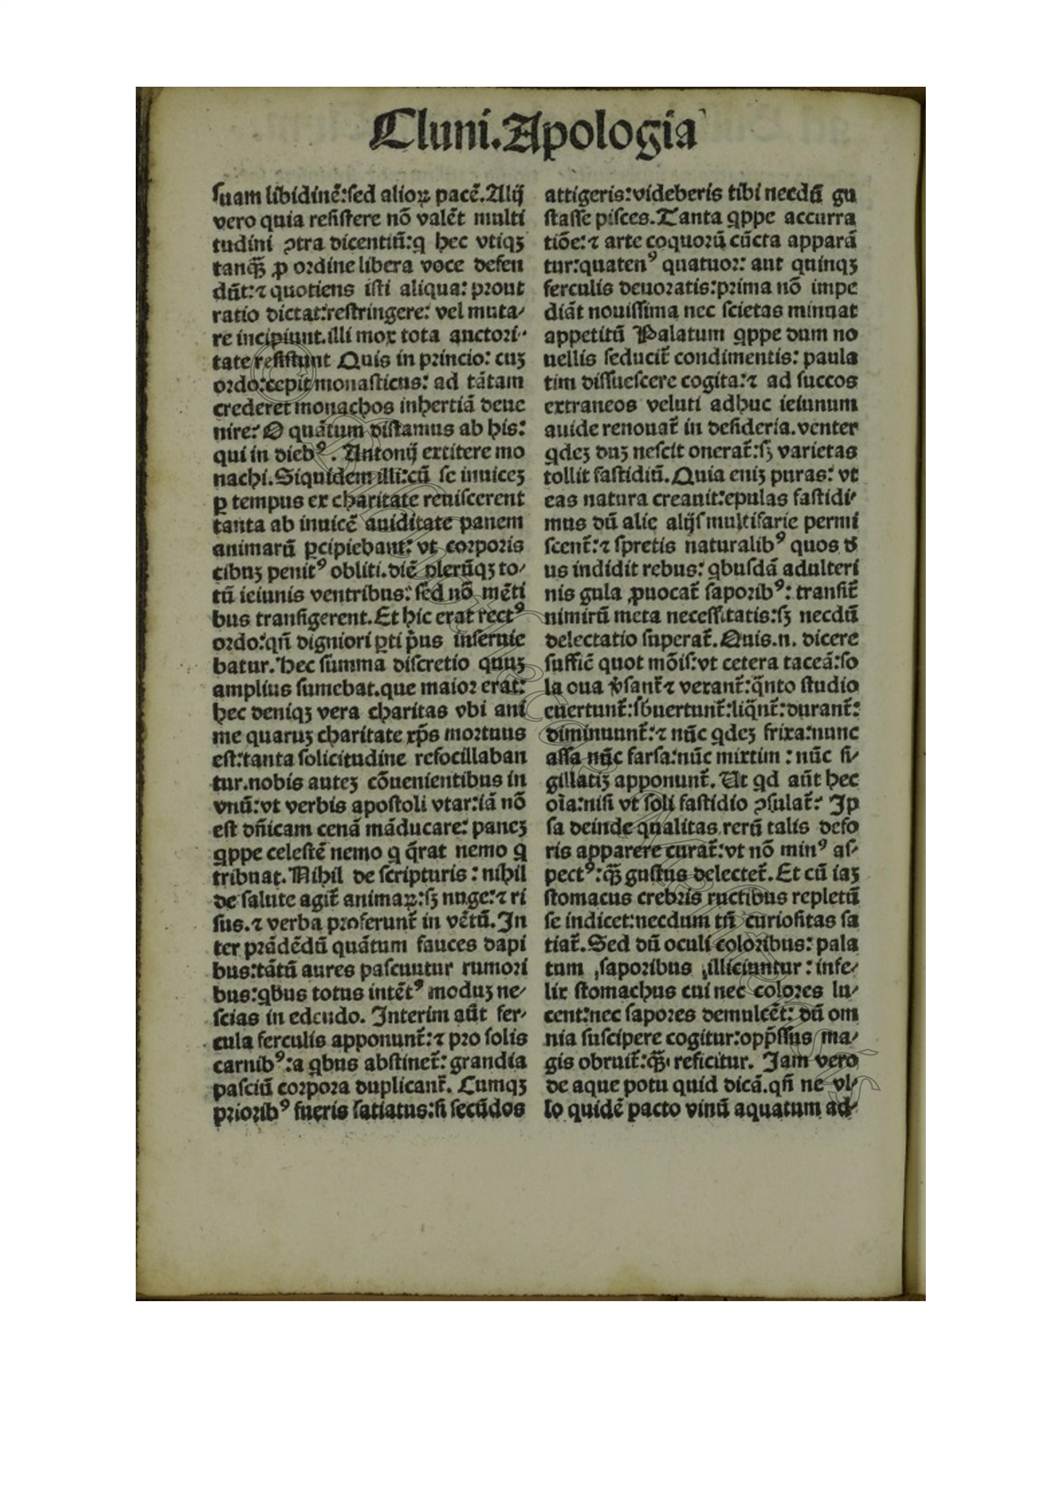 Cluni.Apologia
suam libidinē:sed alioꝝ pacē.Alij
vero quia resistere nō valēt multi
tudini ꝯtra dicentiū:q hec vtiqꝫ
tanqꝫ̄ ꝓ ordine libera voce defen
dūt:⁊ quotiens isti aliqua: prout
ratio dictat:restringere: vel muta⸗
re incipiunt.illi mox tota auctori⸗
tate resistunt Quis in princio: cuꝫ
ordo:cepit monasticus: ad tātam
crederet monachos inhertiā deue
nire: O quātum distamus ab his:
qui in diebꝰ. Antonij extitere mo
nachi.Siquidem illi:cū se inuiceꝫ
ꝑ tempus ex charitate reuiscerent
tanta ab inuicē auiditate panem
animarū ꝑcipiebant: vt corporis
cibuꝫ penitꝰ obliti.diē plerūqꝫ to⸗
tū ieiunis ventribus: sed nō mēti
bus transigerent.Et hic erat rectꝰ
ordo:qn̄ digniori ꝑti p̄us inseruie
batur.Hec summa discretio quuꝫ
amplius sumebat.que maior erat:
hec deniqꝫ vera charitas vbi ani
me quaruꝫ charitate xp̄s mortuus
est:tanta solicitudine refocillaban
tur.nobis auteꝫ cōuenientibus in
vnū:vt verbis apostoli vtar:iā nō
est dn̄icam cenā māducare: paneꝫ
qppe celestē nemo q q̄rat nemo q
tribuat.Nihil de scripturis: nihil
de salute agit̄ animaꝝ:sꝫ nuge:⁊ ri
sus.⁊ verba proferunt̄ in vētū.In
ter prādēdū quātum fauces dapi
bus:tātū aures pascuntur rumori
bus:qbus totus intētꝰ moduꝫ ne⸗
scias in edendo. Interim aūt fer⸗
cula ferculis apponunt̄:⁊ pro solis
carnibꝰ:a qbus abstinet̄: grandia
pasciū corpora duplicant̄. Cumqꝫ
prioribꝰ fueris satiatus:si secūdos
attigeris:videberis tibi necdū gu
stasse pisces.Tanta qppe accurra
tiōe:⁊ arte coquorū cūcta apparā
tur:quatenꝰ quatuor: aut quinqꝫ
ferculis deuoratis:prima nō impe
diāt nouissima nec scietas minuat
appetitū Palatum qppe dum no
uellis seducit̄ condimentis: paula
tim dissuescere cogita:⁊ ad succos
extraneos veluti adhuc ieiunum
auide renouat̄ in desideria.venter
qdeꝫ duꝫ nescit onerat̄:sꝫ varietas
tollit fastidiū.Quia eniꝫ puras: vt
eas natura creauit:epulas fastidi⸗
mus dū alie alijs multifarie permi
scent̄:⁊ spretis naturalibꝰ quos d̄
us indidit rebus: qbusdā adulteri
nis gula ꝓuocat̄ saporibꝰ: transit̄
nimirū meta necessitatis:sꝫ necdū
delectatio superat̄.Quis.n. dicere
sufficē quot mōis:vt cetera taceā:so
la oua v̓sant̄ ⁊ vexant̄:q̄nto studio
euertunt̄:sbuertunt̄:liq̄nt̄:durant̄:
diminuunt̄:⁊ nūc qdeꝫ frixa:nunc
assa nūc farsa:nūc mixtim : nūc si⸗
gillatiꝫ apponunt̄. Ut qd aūt hec
oīa:nisi vt soli fastidio ꝯsulat̄: Ip
sa deinde qualitas rerū talis defo
ris apparere curat̄:vt nō minꝰ as⸗
pectꝰ:qꝫ̄ gustus delectet̄.Et cū iaꝫ
stomacus crebris ructibus repletū
se indicet:necdum tn̄ curiositas sa
tiat̄.Sed dū oculi coloribus: pala
tum saporibus illiciuntur: infe⸗
lix stomachus cui nec colores lu⸗
cent:nec sapores demulcēt: dū om
nia suscipere cogitur:opp̄ssus ma⸗
gis obruit̄:qꝫ̄ reficitur. Jam vero
de aque potu quid dicā.qn̄ ne vl⸗
lo quidē pacto vinū aquatum ad⸗